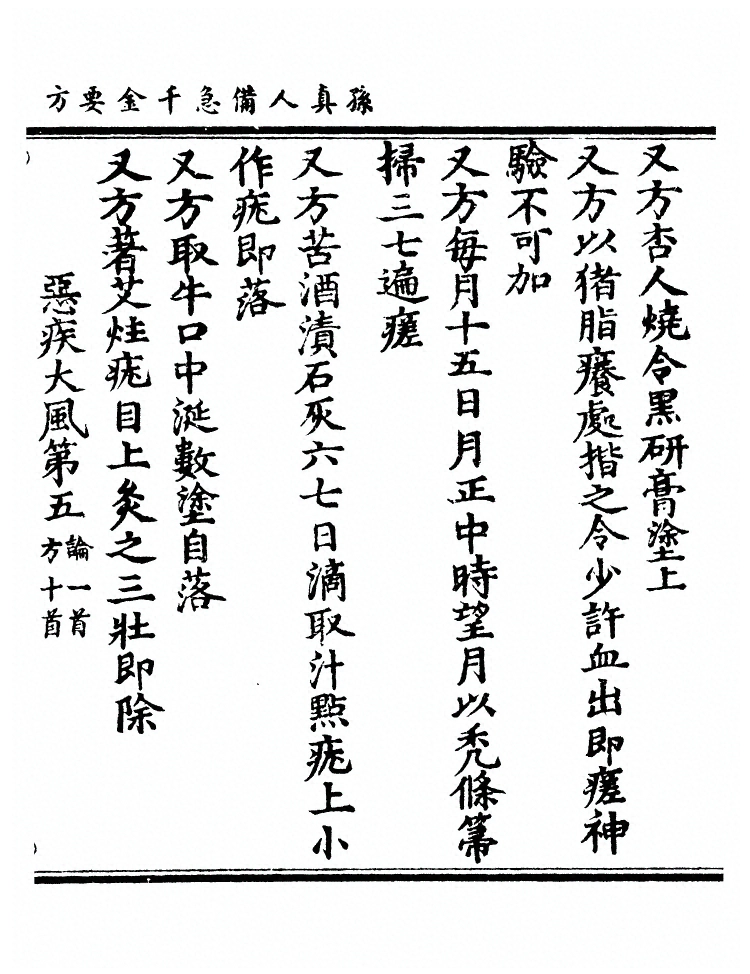 孫真人備急千金要方
又方杏人燒令黑研膏塗上
又方以猪脂癢處揩之令少許血出即瘥神
驗不可加
又方每月十五日月正中時望月以秃條箒
掃三七遍瘥
又方苦酒漬石灰六七日滴取汁點疣上小
作疣即落
又方取牛口中涎數塗自落
又方著艾炷疣目上灸之三壯即除
惡疾大風第五論一首方十首